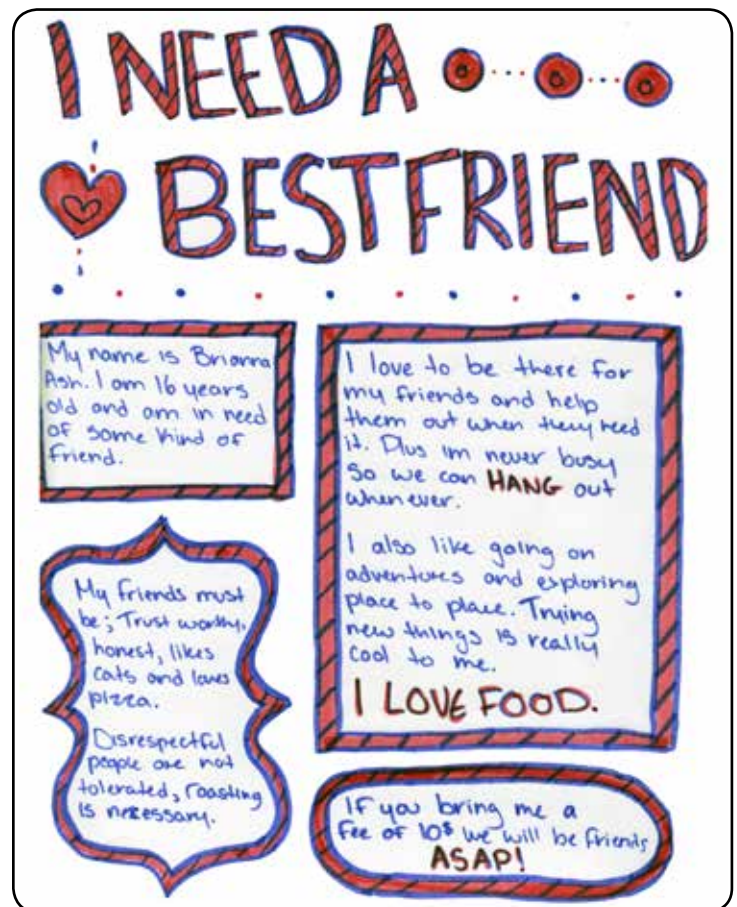 I NEED A
BESTFRIEND
My name is Brianna
Ash. I am 16 years
old and am in need
of some kind of
friend.
My friends must
be; Trust worthy,
honest, likes
cats and loves
pizza.
Disrespectful
people are not
tolerated, roasting
is necessary.
I love to be there for
my friends and help
them out when they need
it. Plus im never busy
so we can HANG out
whenever.
I also like going on
adventures and exploring
place to place. Trying
new things is really
cool to me.
I LOVE FOOD.
If you bring me a
fee of 10$ we will be friends
ASAP!